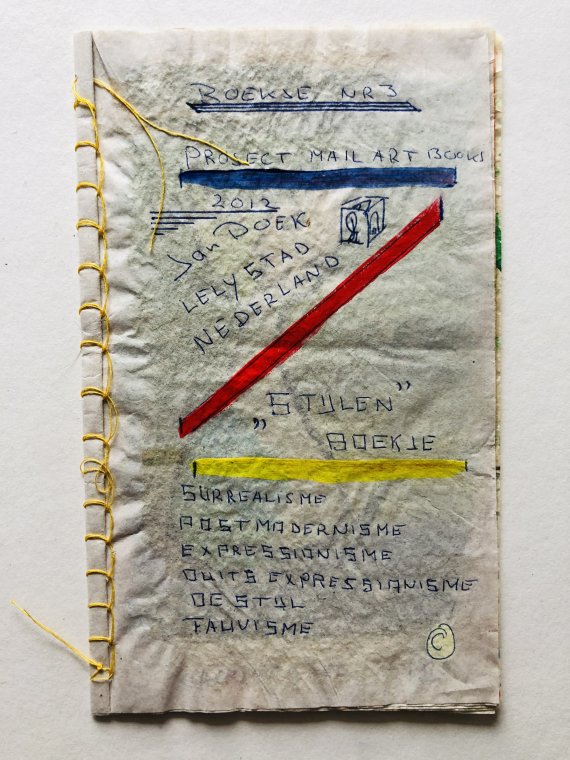 BOEKJE NR 3
PROJECT MAIL ART BOOKS
2012
Jan BOEK
LELYSTAD
NEDERLAND
„STIJLEN”
BOEKJE
SURREALISME
POSTMODERNISME
EXPRESSIONISME
DUITS EXPRESSIONISME
DE STIJL
FAUVISME
C